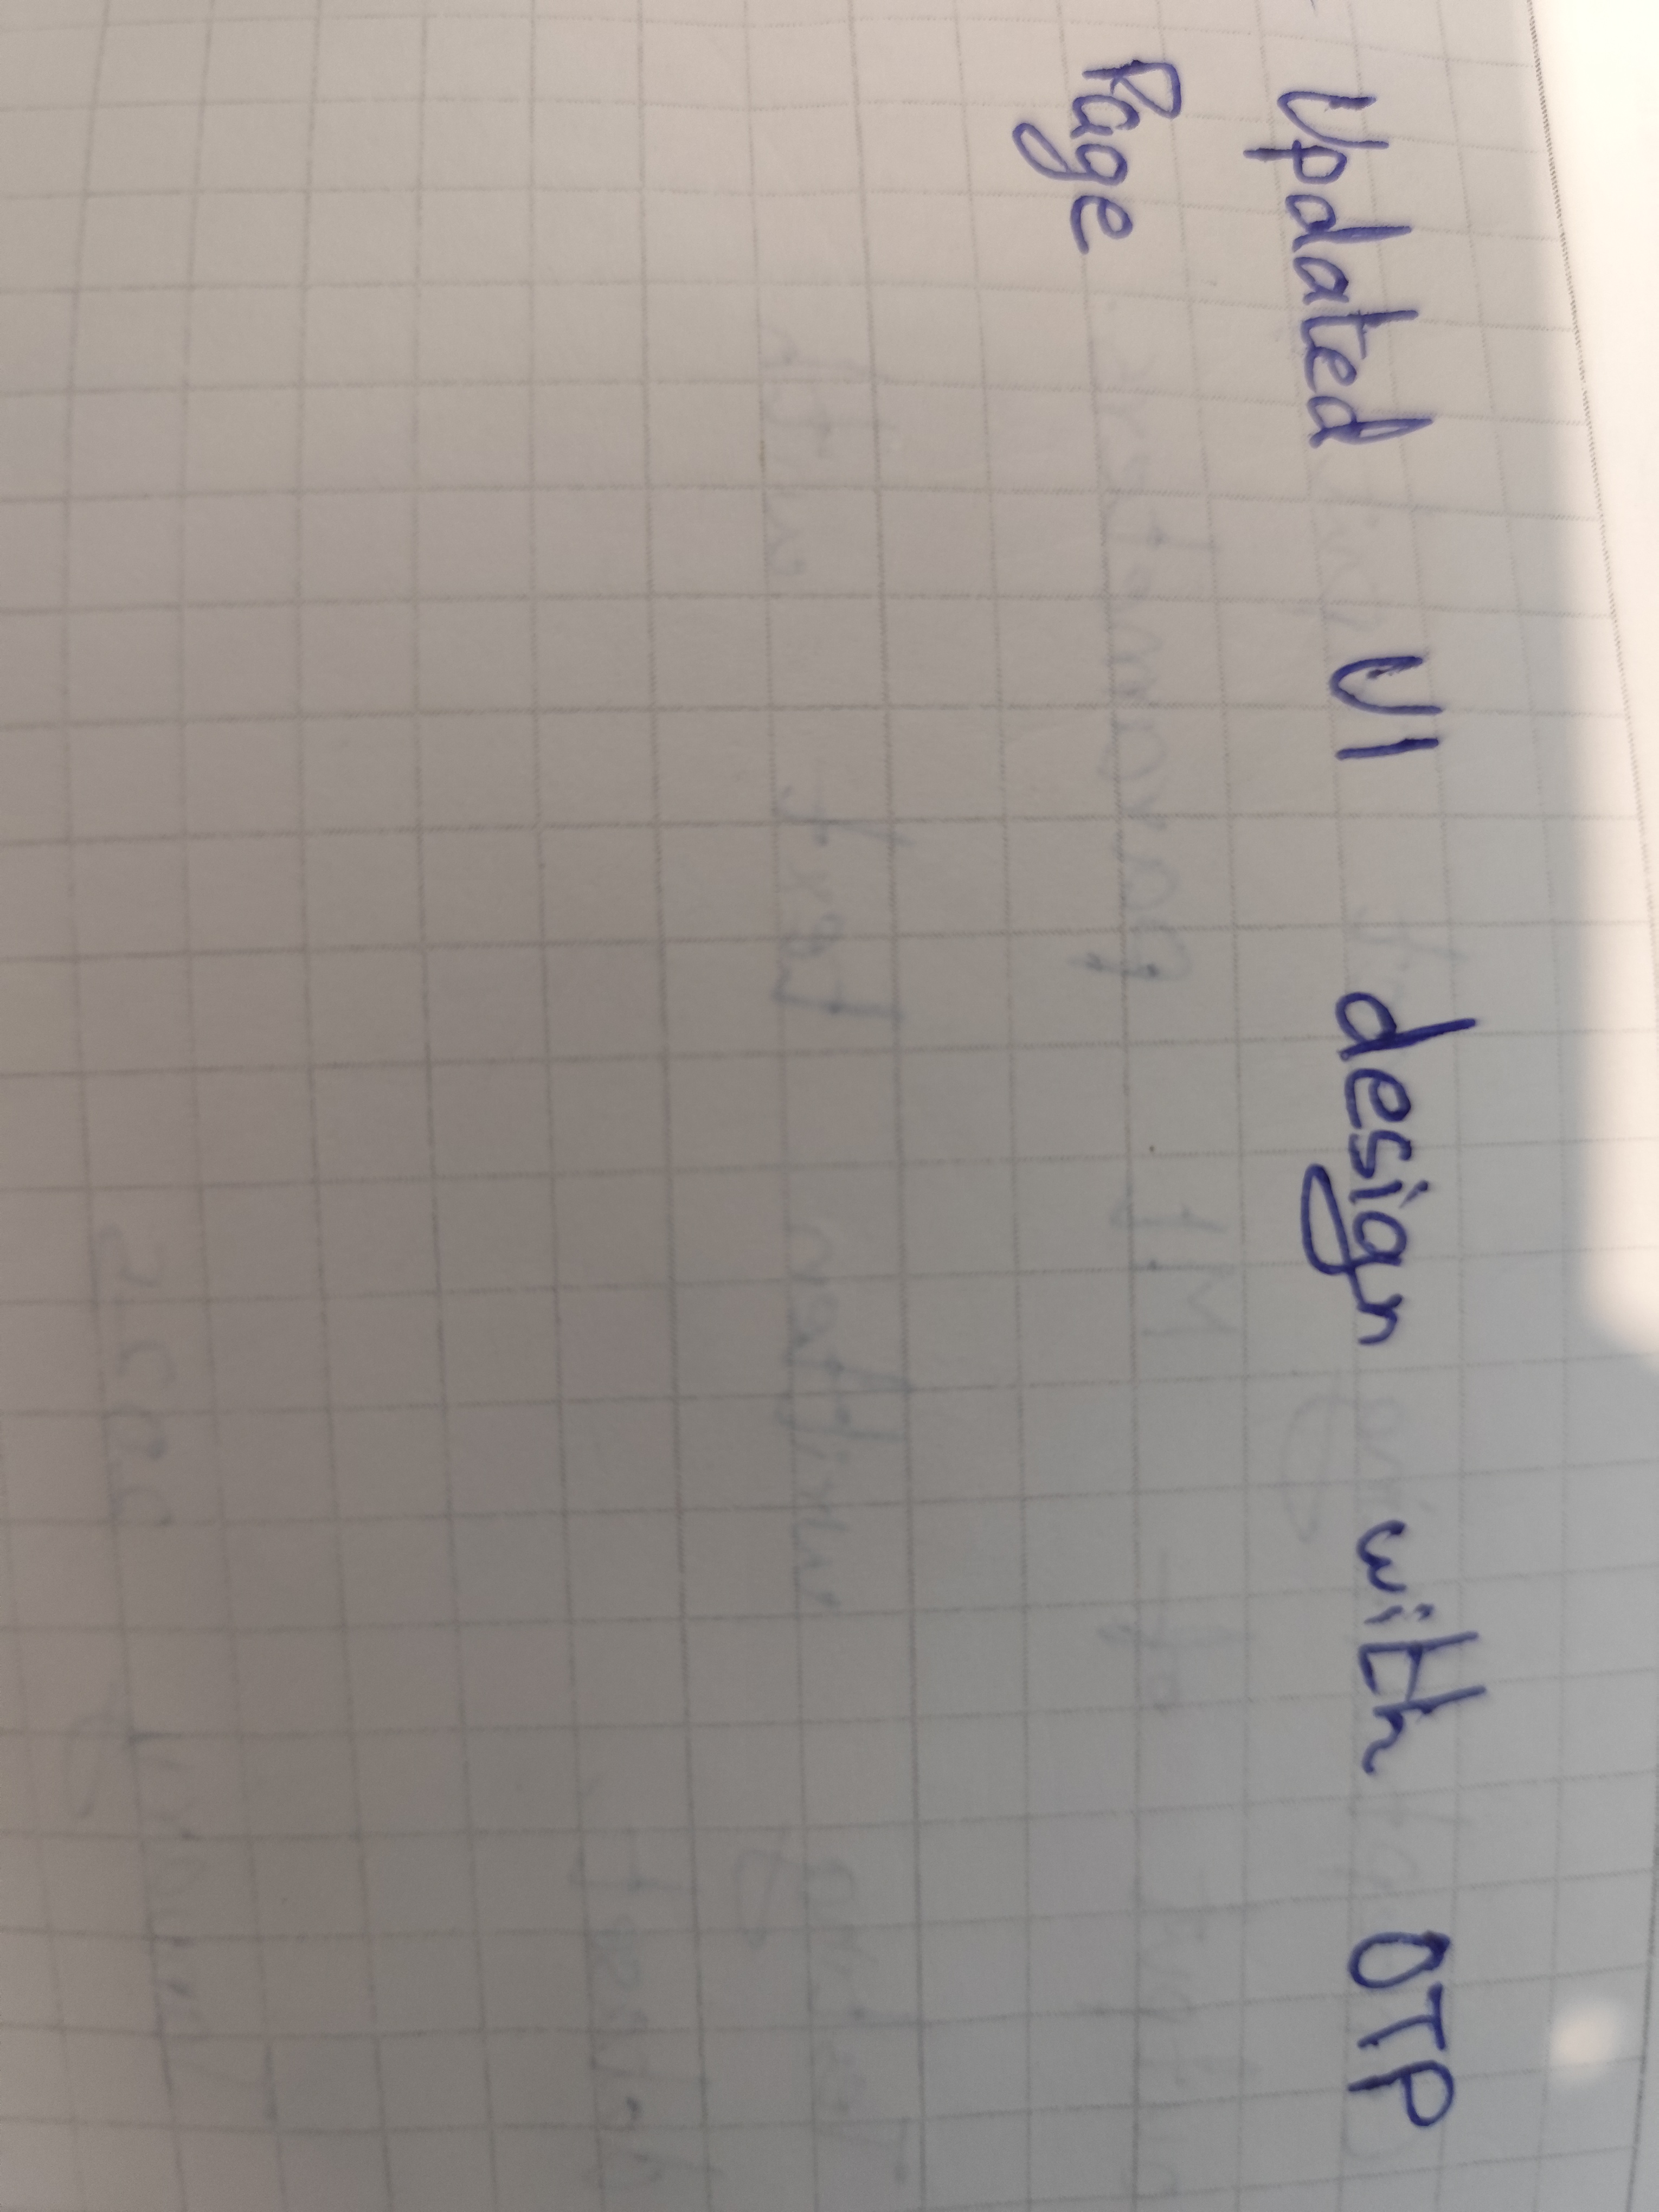 Updated UI design with OTP
Page